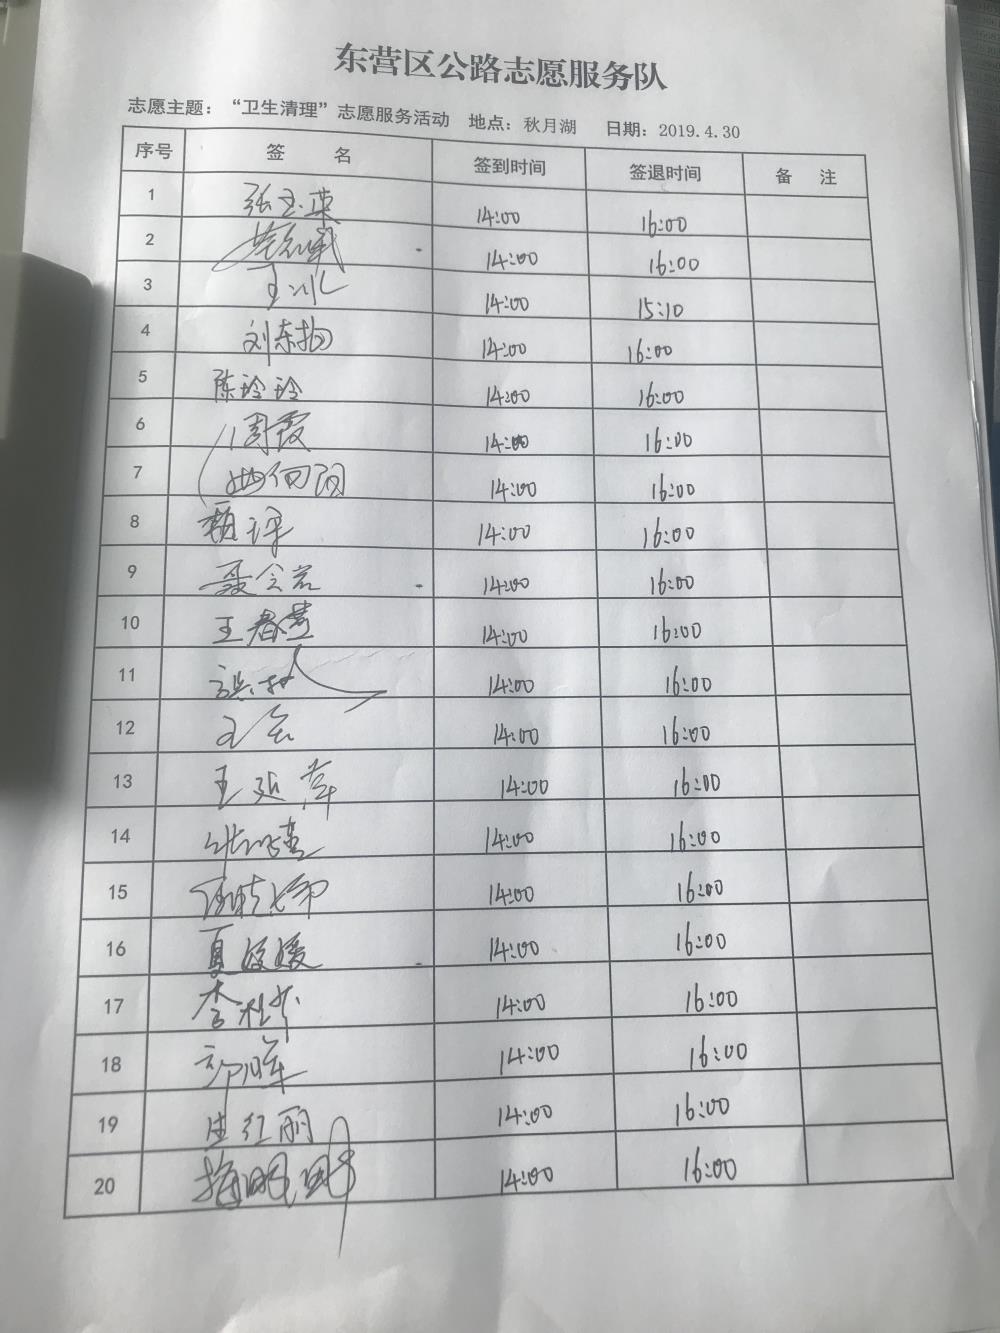 东营区公路志愿服务队
志愿主题：“卫生清理”志愿服务活动 地点：秋月湖 日期：2019.4.30
序号 签 名 签到时间 签退时间 备 注
1 张玉荣 14:00 16:00
2 14:00 16:00
3 王冰 14:00 15:10
4 刘东梅 14:00 16:00
5 陈玲玲 14:00 16:00
6 周霞 14:00 16:00
7 14:00 16:00
8 14:00 16:00
9 聂令岩 14:00 16:00
10 王春梦 14:00 16:00
11 14:00 16:00
12 14:00 16:00
13 王延萍 14:00 16:00
14 14:00 16:00
15 14:00 16:00
16 夏媛媛 14:00 16:00
17 14:00 16:00
18 14:00 16:00
19 红丽 14:00 16:00
20 14:00 16:00